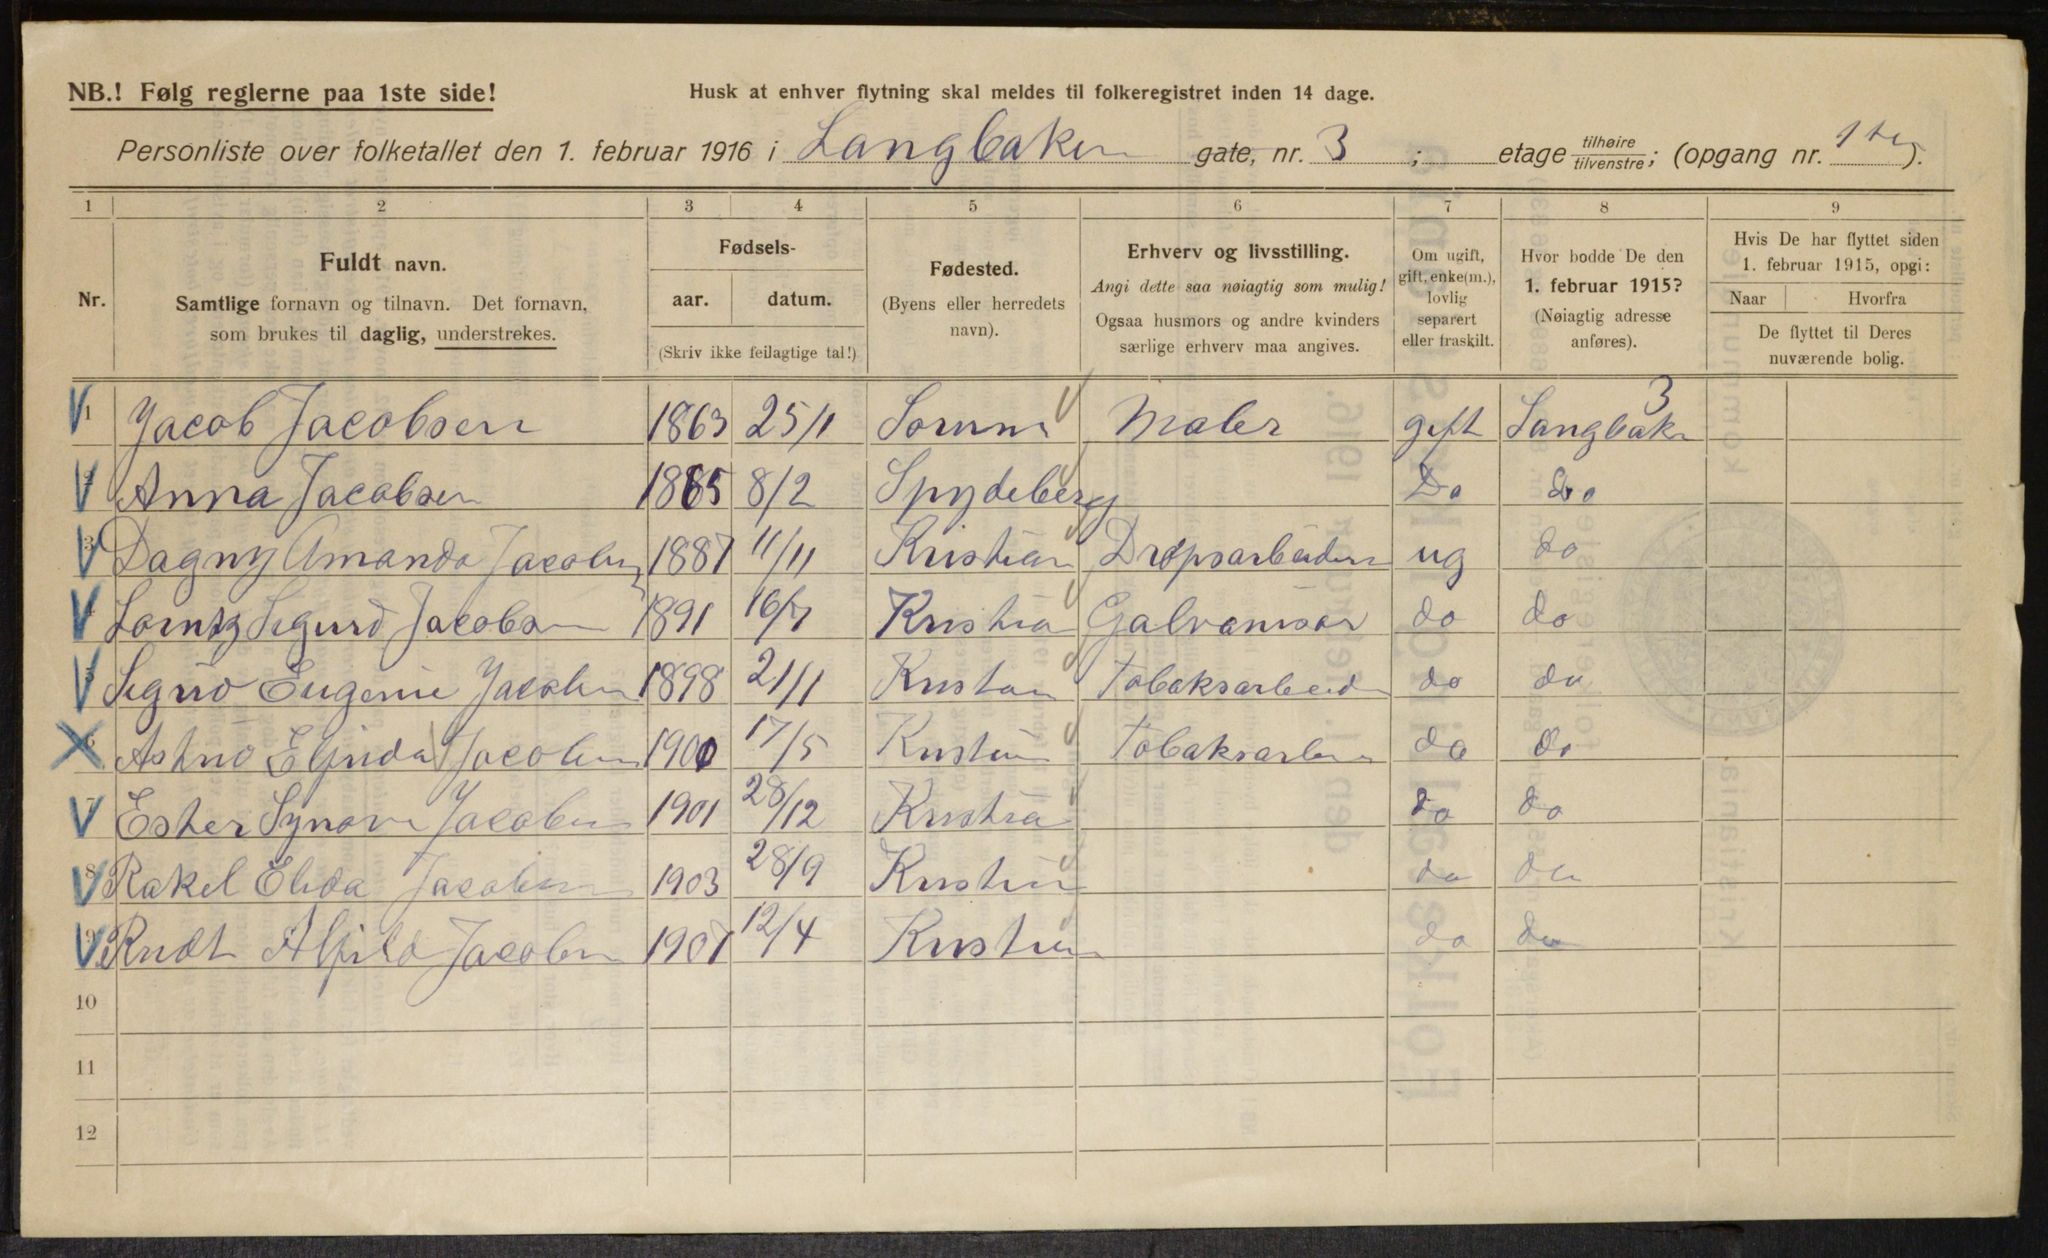 NB.! Følg reglerne paa 1ste side!
Husk at enhver flytning skal meldes til folkeregistret inden 14 dage.
Personliste over folketallet den 1. februar 1916 i Langbaken gate, nr. 3 ; etage tilhøire tilvenstre; (opgang nr. ).
1 2 3 4 5 6 7 8 9
Nr.
Fuldt navn.
Samtlige fornavn og tilnavn. Det fornavn,
som brukes til daglig, understrekes.
Fødsels-
aar. datum.
(Skriv ikke feilagtige tal!)
Fødested.
(Byens eller herredets
navn).
Erhverv og livsstilling.
Angi dette saa nøiagtig som mulig!
Ogsaa husmors og andre kvinders
særlige erhverv maa angives.
Om ugift,
gift, enke(m.),
lovlig
separert
eller fraskilt.
Hvor bodde De den
1. februar 1915?
(Nøiagtig adresse
anføres).
Hvis De har flyttet siden
1. februar 1915, opgi:
Naar Hvorfra
De flyttet til Deres
nuværende bolig.
1 Jacob Jacobsen 1863 25/1 Sørum Maler gift Langbak 3
2 Anna Jacobsen 1865 8/2 Spydeberg Do do
3 Dagny Amanda Jacobsen 1887 11/11 Kristian Dropsarbeider ug do
4 Sigurd Jacobsen 1891 16/7 Kristia Galvanisør do do
5 Sigrid Eugenie Jacobsen 1898 21/1 Kristian Tobaksarbeid do do
6 Astrid Jacobsen 1900 17/5 Kristian Tobaksarbei do do
7 Ester Synøve Jacobsen 1901 28/12 Kristia do do
8 Rakel Elida Jacobsen 1903 28/9 Kristian do do
9 Alfild Jacobsen 1907 12/4 Kristian do do
10
11
12